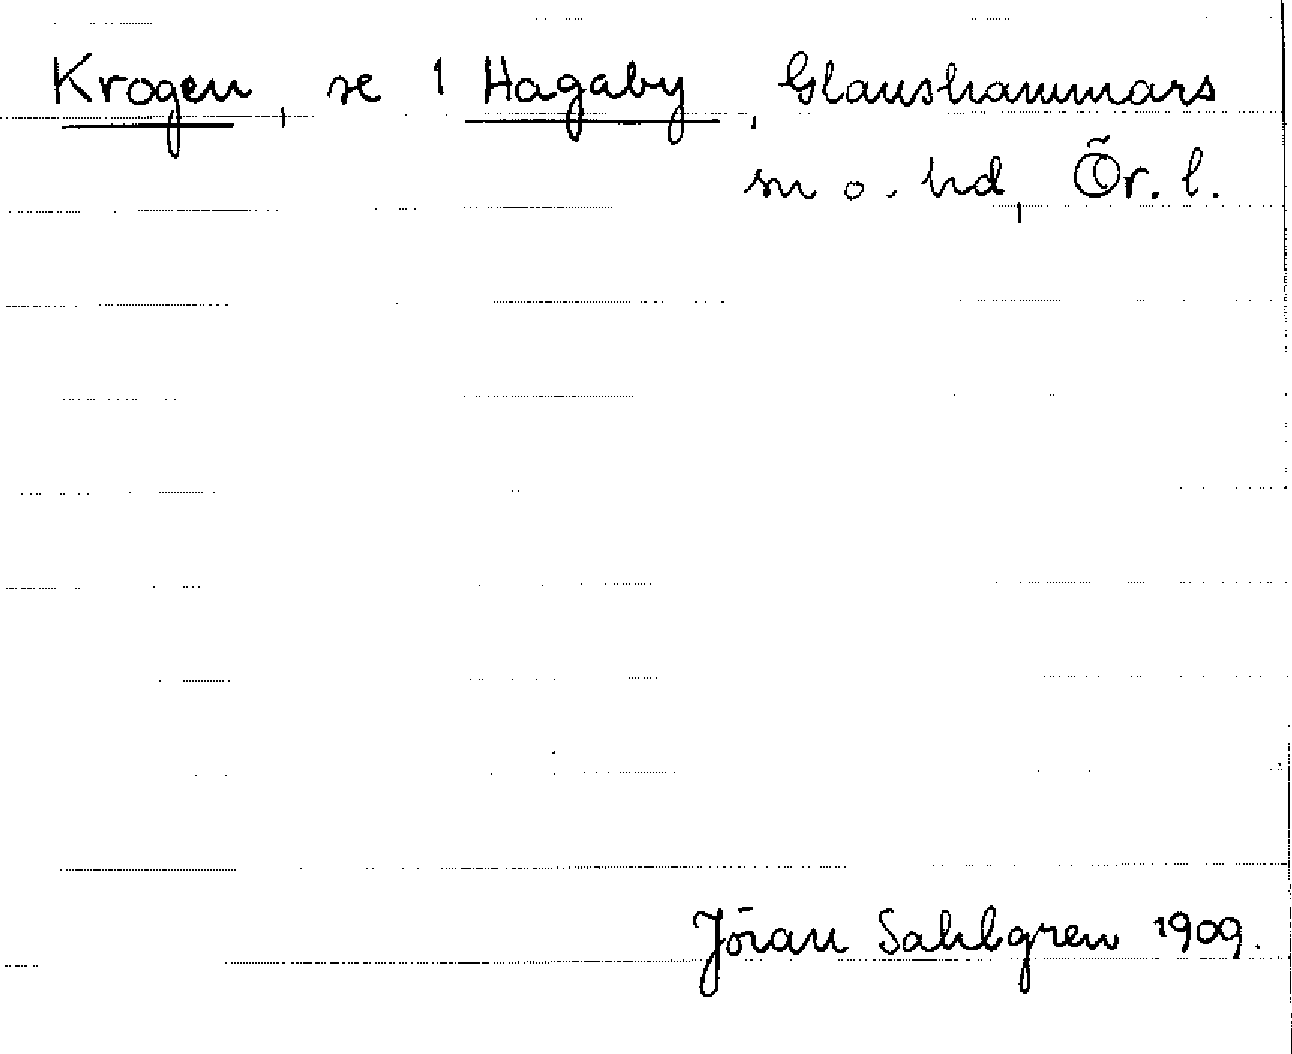 Krogen, se 1 Hagaby, Glanshammars
sn o. hd, Ör. l.
Jöran Sahlgren 1909.